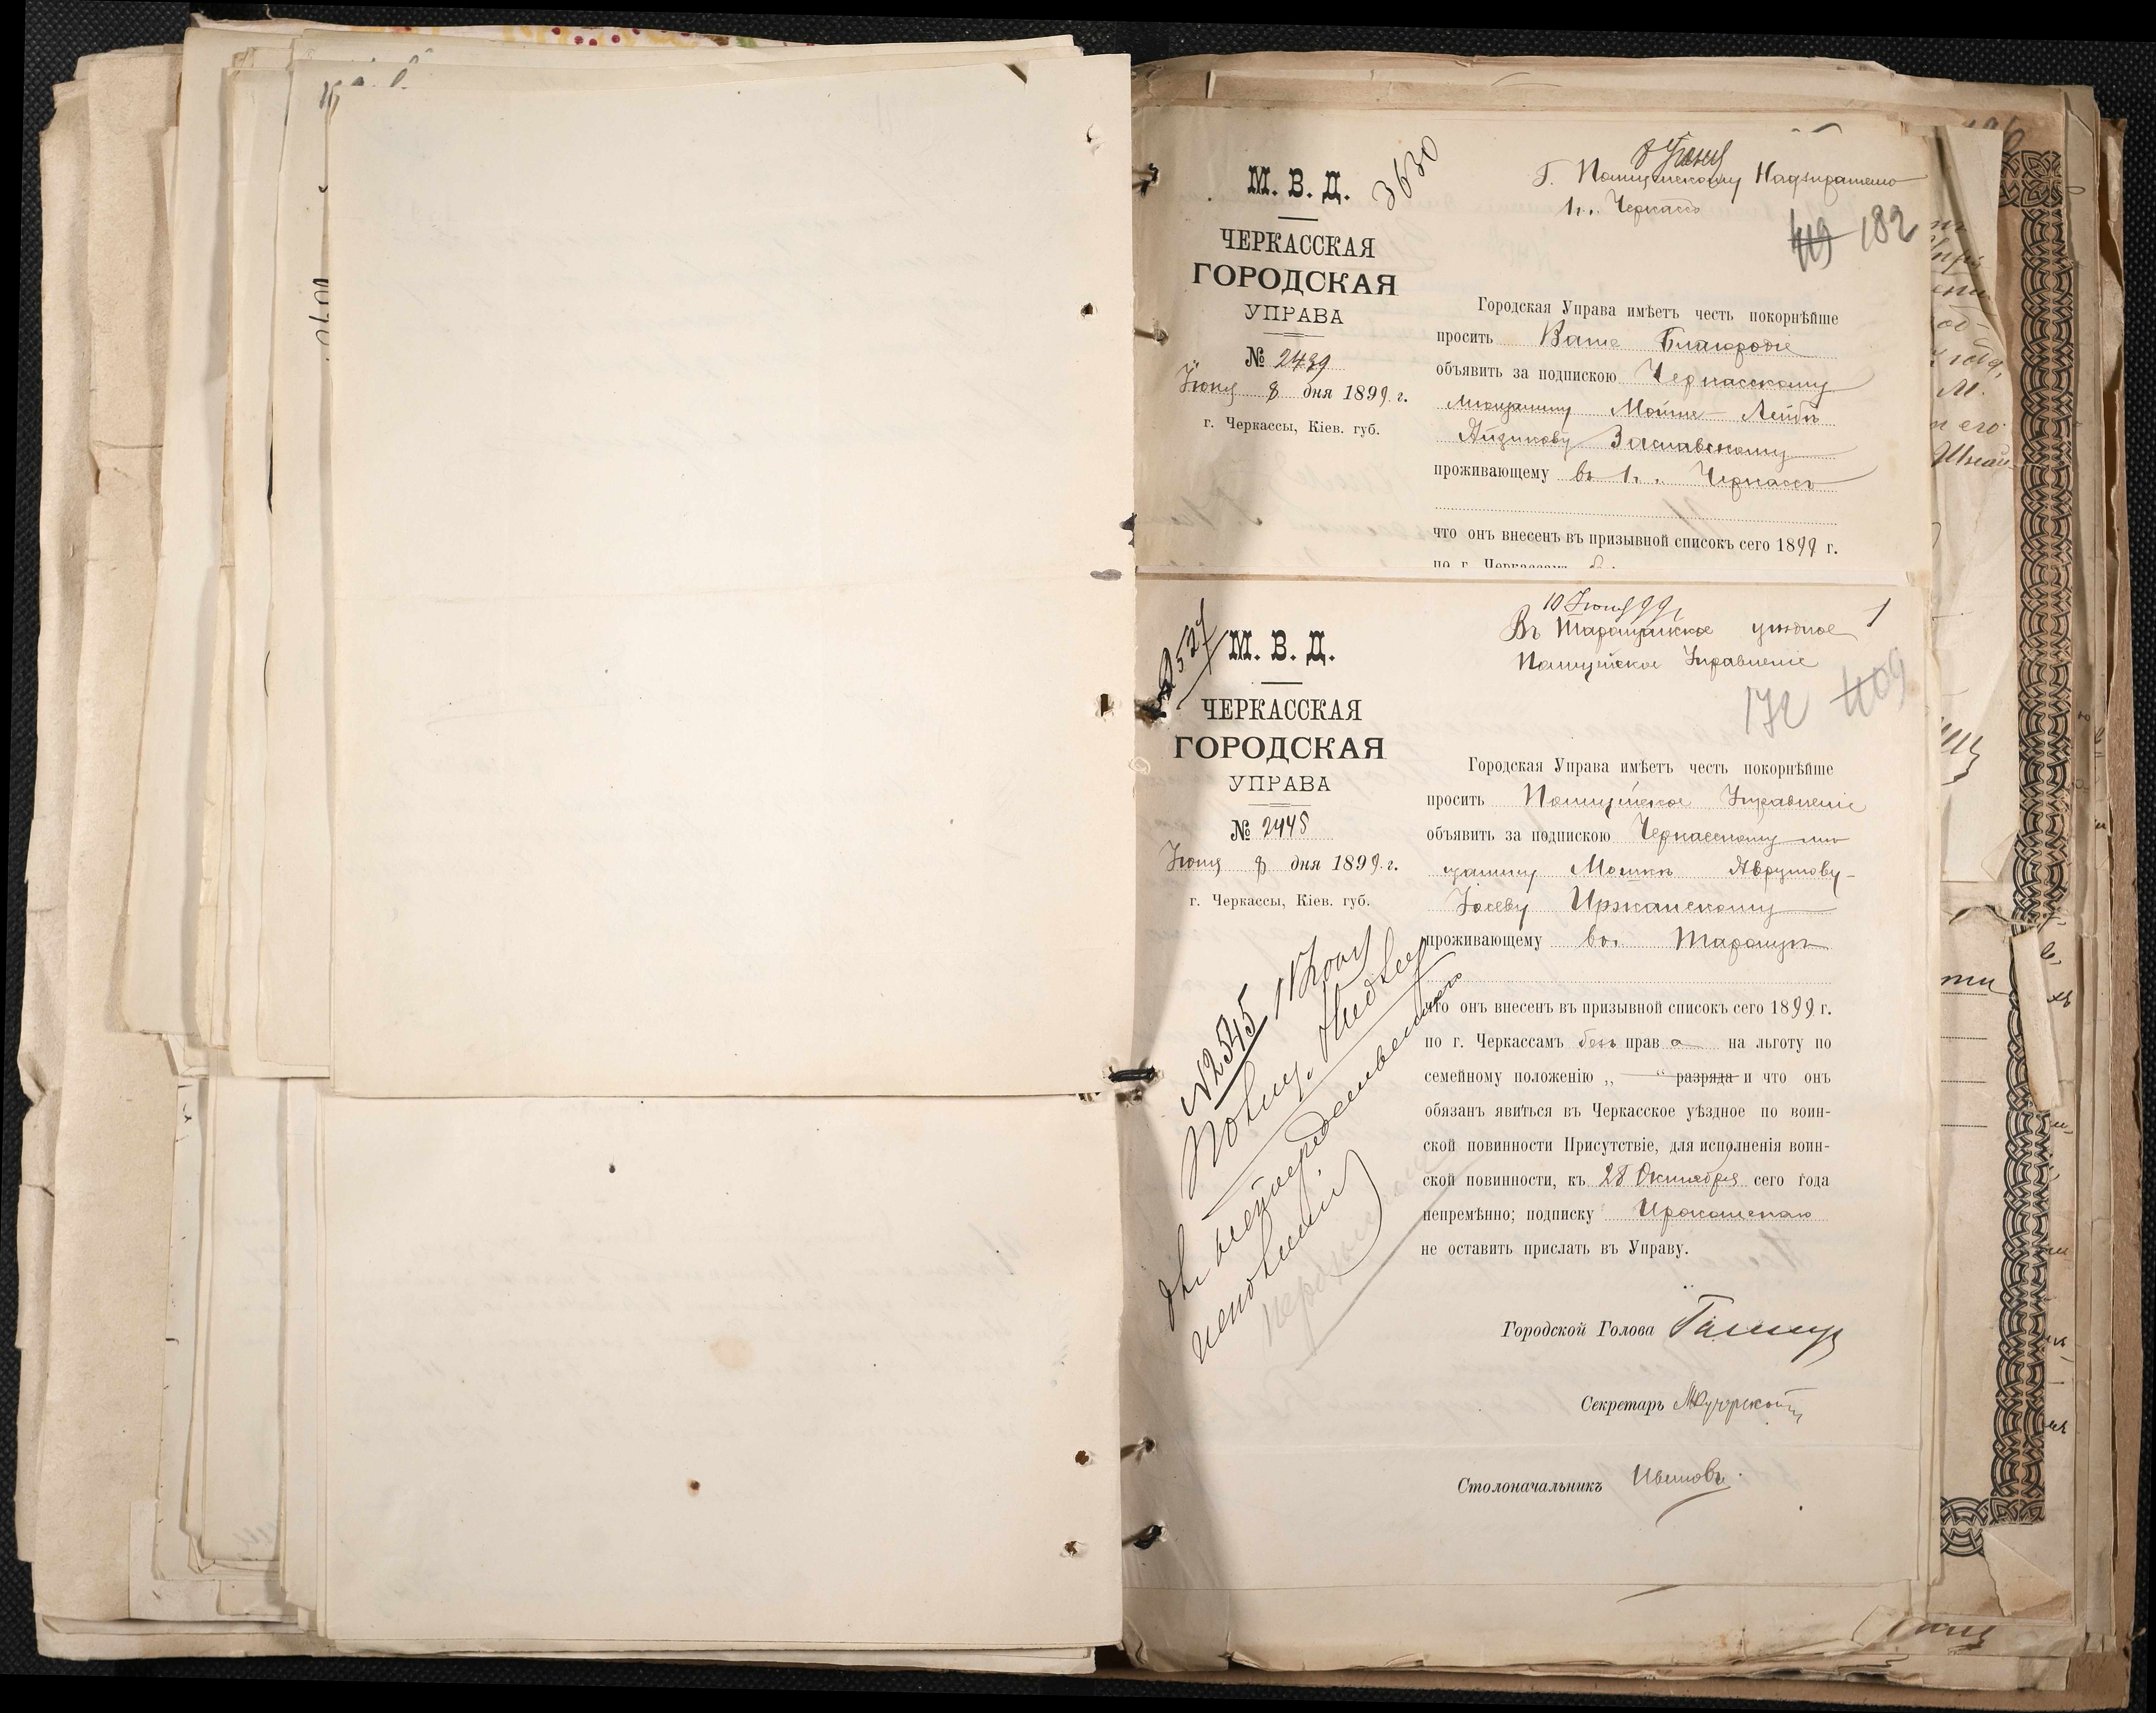 М. В. Д.
3630
ЧЕРКАССКАЯ
ГОРОДСКАЯ
УПРАВА
№ 2439
Іюня 8 дня 1899 г.
г. Черкассы, Кіев. губ.
Г. Полицейскому Надзирателю
г. Черкассъ
119 182
Городская Управа имѣетъ честь покорнѣйше
просить Ваше Благородіе
объявить за подпискою Черкасскому
мѣщанину Мошко-Лейбѣ
Айзикову Заславскому
проживающему въ г. Черкассъ
что онъ внесенъ въ призывной списокъ сего 1899 г.
по г. Черкассамъ
2527
М. В. Д.
ЧЕРКАССКАЯ
ГОРОДСКАЯ
УПРАВА
№ 2445
Іюня 8 дня 1899 г.
г. Черкассы, Кіев. губ.
10 Іюня 99 г.
1
Въ Таращанское уѣздное
Полицейское Управленіе
172 409
Городская Управа имѣетъ честь покорнѣйше
просить Полицейское Управленіе
объявить за подпискою Черкасскому мѣ
щанину Мошкѣ Аврумову-
Іосеву Иржанскому
проживающему въ Таращѣ
что онъ внесенъ въ призывной списокъ сего 1899 г.
по г. Черкассамъ безъ права на льготу по
семейному положенію „ “ разряда и что онъ
обязанъ явиться въ Черкасское уѣздное по воин-
ской повинности Присутствіе, для исполненія воин-
ской повинности, къ 28 Октября сего года
непремѣнно; подписку
не оставить прислать въ Управу.
Городской Голова
Секретарь
Столоначальникъ Ивановъ
№2545 11 Іюня
Полиц. Надзир
исполненія